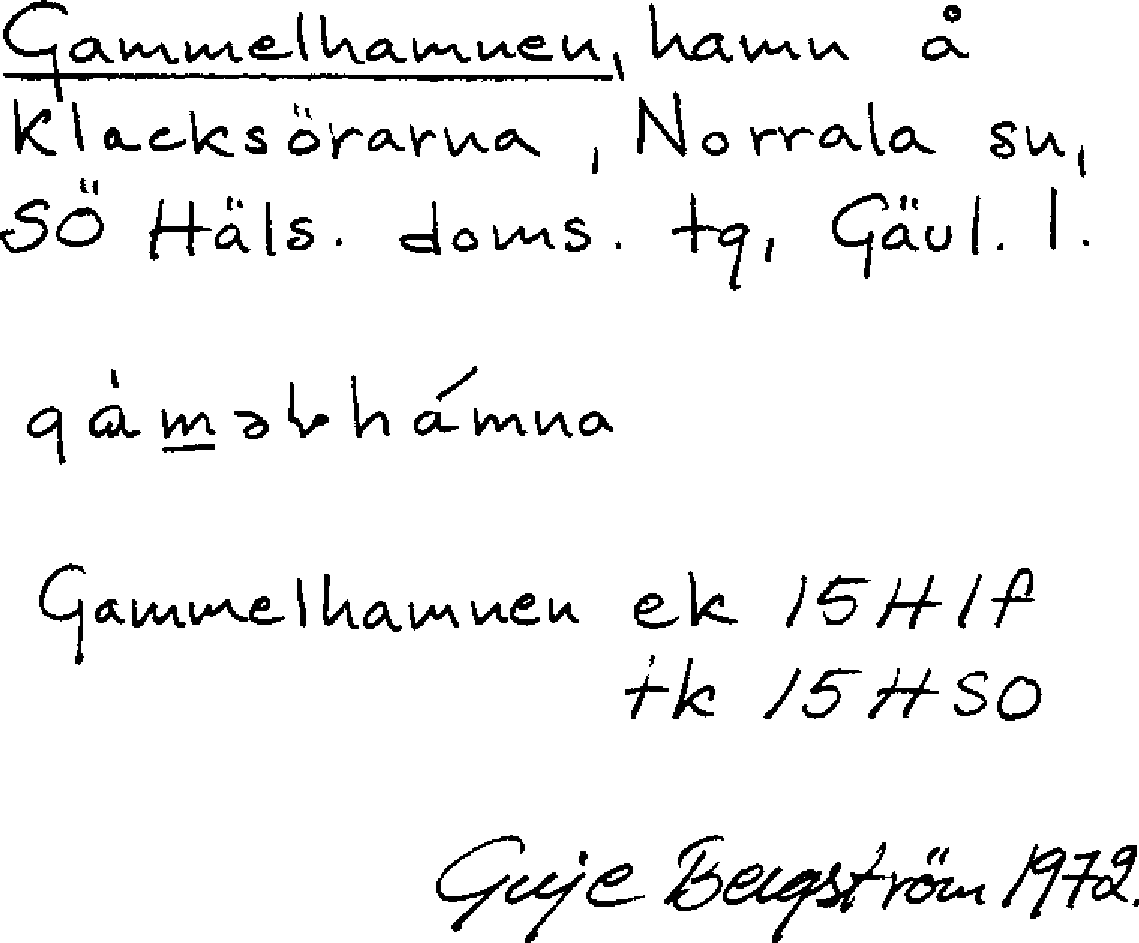 Gammelhamnen, hamn å
Klacksörarna, Norrala sn,
SÖ Häls. doms. tg, Gävl. l.
Gammelhamnen ek 15H1f
tk 15HSO
Guje Bergström 1972.